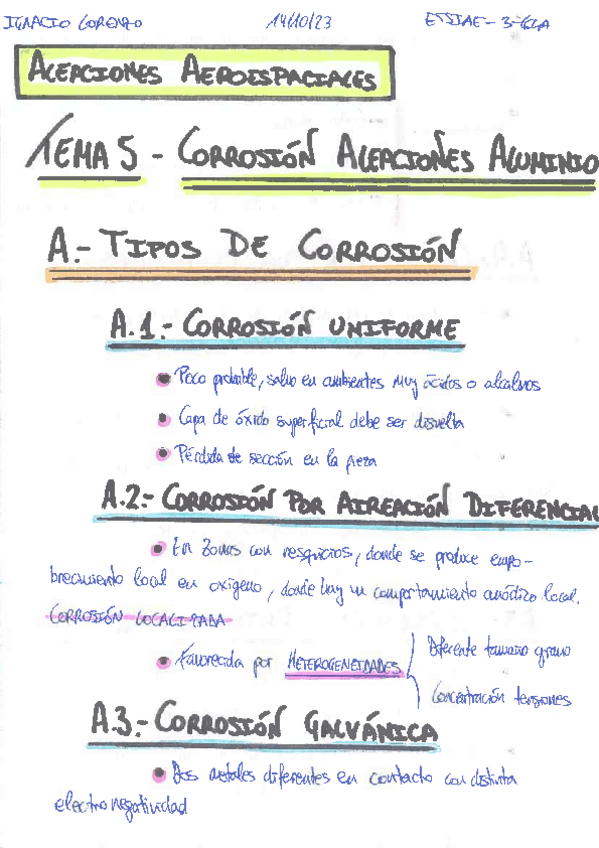 IGNACIO LORENZO 14/10/23 ETSIAE-3-
ALEACIONES AEROESPACIALES
TEMA 5 - CORROSIÓN ALEACIONES ALUMINIO
A.- TIPOS DE CORROSIÓN
A.1.- CORROSIÓN UNIFORME
Poco probable, salvo en ambientes muy ácidos o alcalinos
Capa de óxido superficial debe ser disuelta
Pérdida de sección en la pieza
A.2.- CORROSIÓN POR AIREACIÓN DIFERENCIAL
En zonas con resquicios, donde se produce empo-
brecimiento local en oxígeno, donde hay un comportamiento anódico local.
CORROSIÓN LOCALIZADA
Favorecida por HETEROGENEIDADES Diferente tamaño grano
Concentración tensiones
A.3.- CORROSIÓN GALVÁNICA
Dos metales diferentes en contacto con distinta
electronegatividad